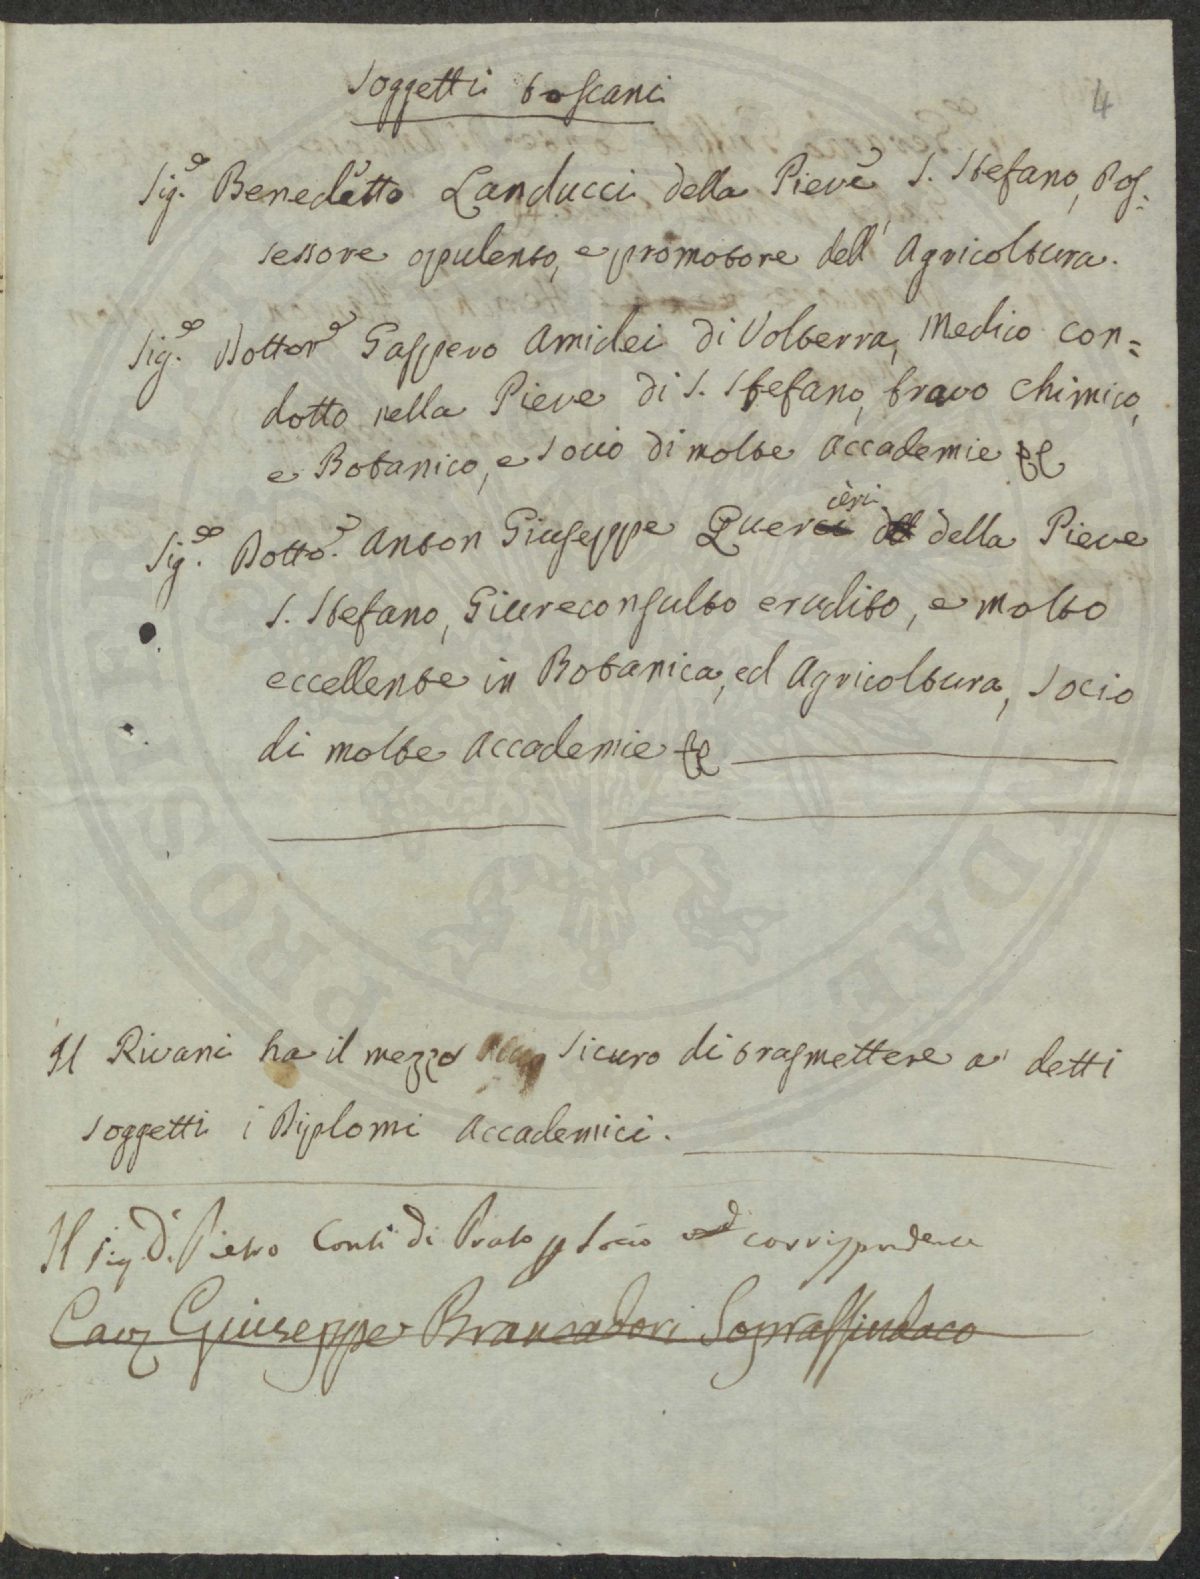 Soggetti toscani
4
Sig.e Benedetto Landucci della Pieve S. Stefano, Pos=
sessore opulento, e promotore dell' Agricoltura.
Sig.e Dottore Gaspero Amidei di Volterra, Medico con=
dotto nella Pieve di S. Stefano, bravo Chimico,
e Botanico, e Socio di molte Accademie
Sig.e Dotto.e Anton Giuseppe Quercièri della Pieve
S. Stefano, Giureconsulto erudito, e molto
eccellente in Botanica, ed Agricoltura, Socio
di molte Accademie
Il Rivani ha il mezzo sicuro di trasmettere a' detti
soggetti i Diplomi Accademici.
Il Sig. D. Pietro Conti di Prato p Socio di corrispondenza
Cav Giuseppe Brancadori Soprassindaco